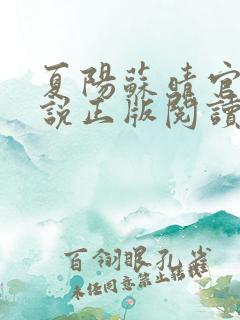 夏陽蘇晴官
說正版閱讀
百翎眼孔雀
未任同意禁止转